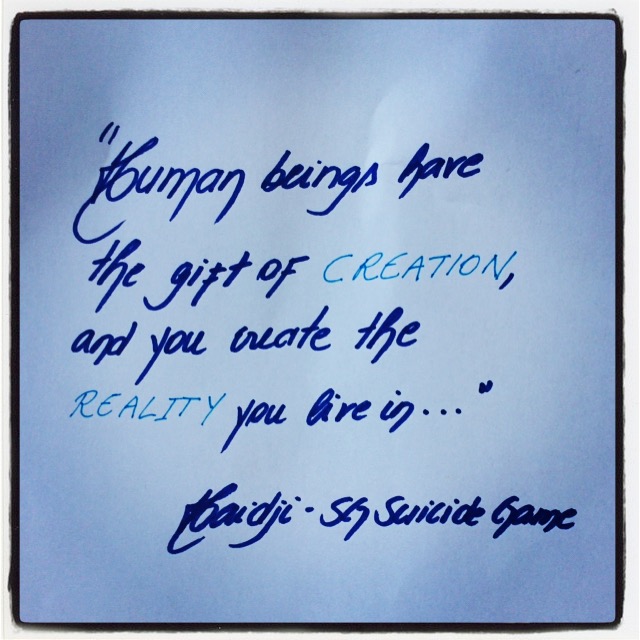 "Human beings have
the gift of CREATION,
and you create the
REALITY you live in..."
Haidji - SG Suicide Game